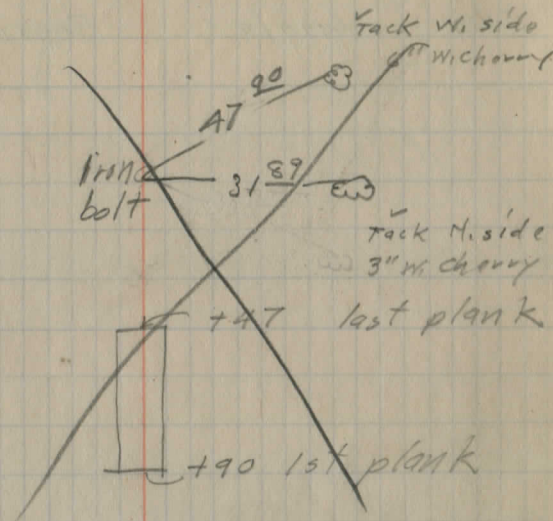 Tack W. side
6" W. cherry
47 90
Iron
bolt
31 89
Tack N. side
3" W. cherry
+47 last plank
+90 1st plank